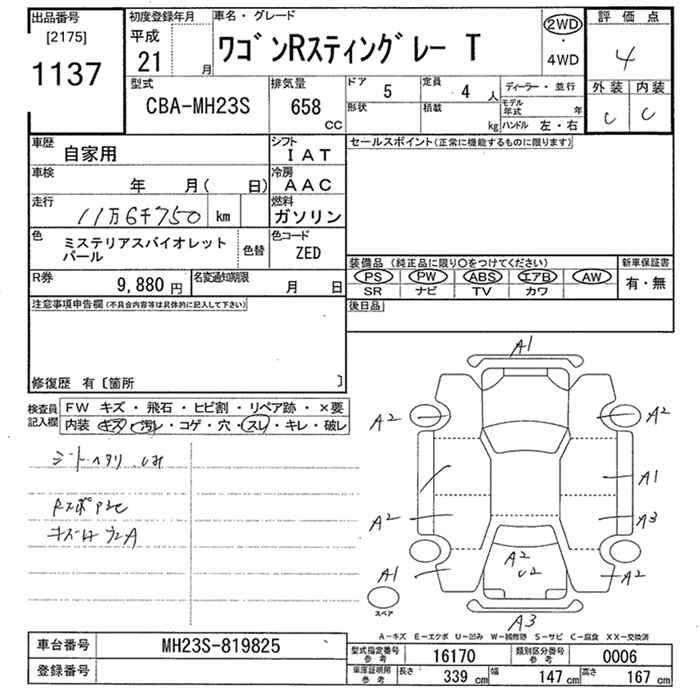 出品番号
[2175]
1137
初度登録年月
平成
21 月
車名・グレード
ワゴンRスティングレー T
2WD
・
4WD
評価点
4
外装 内装
C C
型式
CBA-MH23S
排気量
658
CC
ドア
5
定員
4 人
形状
積載
kg
ディーラー・並行
モデル年式 年
ハンドル 左・右
車歴
自家用
シフト
IAT
車検
年 月( 日)
冷房
AAC
走行
11万6千750 km
燃料
ガソリン
色
ミステリアスバイオレット
パール
色替
色コード
ZED
R券
9,880 円
名変通知期限
月 日
セールスポイント(正常に機能するものに限ります)
装備品 (純正品に限り○をつけてください)
PS PW ABS エアB AW
SR ナビ TV カワ
新車保証書
有・無
後日品
注意事項申告欄(不具合内容等は具体的に記入して下さい)
修復歴 有〔箇所 〕
検査員
記入欄
FW キズ・飛石・ヒビ割・リペア跡・×要
内装 キズ・汚レ・コゲ・穴・スレ・キレ・破レ
シートヘタリ
A1
A2
A2
A1
A2
A3
A2
U2
A1
A2
スペア
A3
A-キズ E-エクボ U-凹み W-補修跡 S-サビ C-腐食 XX-交換済
車台番号
MH23S-819825
登録番号
型式指定番号
参考
16170
類別区分番号
参考
0006
車庫証明用
参考
長さ
339 cm
幅
147 cm
高さ
167 cm